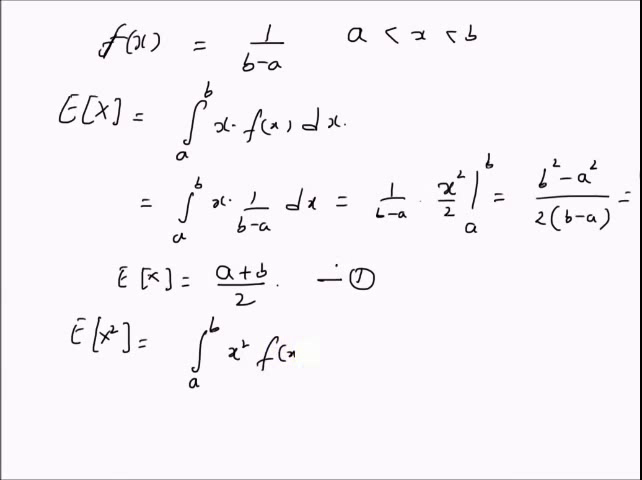 f(x) = 1/(b-a) a < x < b
E[X] = ∫_a^b x. f(x) dx.
= ∫_a^b x. 1/(b-a) dx = 1/(b-a) . x²/2 |_a^b = (b² - a²)/(2(b-a)) =
E[x] = (a+b)/2. — ①
E[X²] = ∫_a^b x² f(x